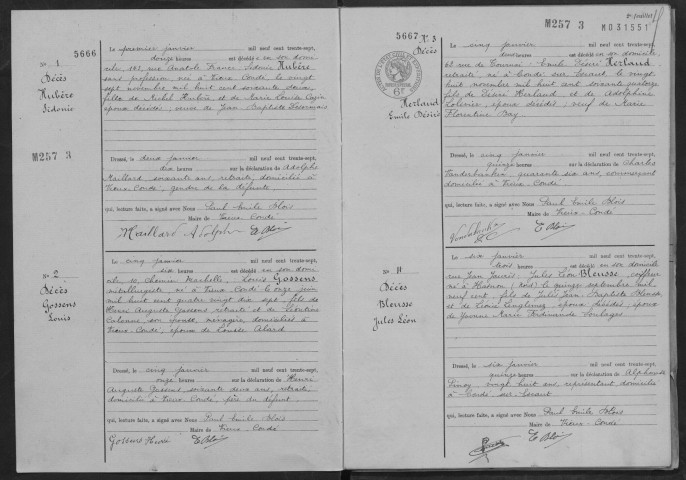 5666
N° 1
Décès
Hubère
Sidonie
M257 3
Le premier janvier mil neuf cent trente-sept,
douze heures est décédé en son domi
cile, 103, rue Anatole France, Sidonie Hubère
sans profession, née à Vieux-Condé, le vingt
sept novembre mil huit cent soixante deux,
fille de Michel Hubère et de Marie Louise
époux décédés; veuve de Jean-Baptiste
Dressé, le deux janvier mil neuf cent trente-sept,
dix heures sur la déclaration de Adolphe
Maillard soixante ans, retraité, domicilié à
Vieux-Condé, gendre de la défunte
qui, lecture faite, a signé avec Nous Paul Emile Blois
Maire de Vieux-Condé
Maillard Adolphe E Blois
N° 2
Décès
Gossens
Louis
Le cinq janvier mil neuf cent trente-sept,
six heures est décédé en son domi
cile, 10, Chemin Louis Gossens
né à Vieux-Condé le onze juin
mil huit cent quatre vingt dix sept, fils de
Henri Auguste Gossens, retraité et de Léontine
son épouse, ménagère, domiciliés à
Vieux-Condé, époux de Louise Alard
Dressé, le cinq janvier mil neuf cent trente-sept,
onze heures sur la déclaration de Henri
Auguste Gossens, soixante deux ans, retraité,
domicilié à Vieux-Condé, père du défunt
qui, lecture faite, a signé avec Nous Paul Emile Blois
Maire de Vieux-Condé
Gossens Henri E Blois
2e feuillet
M257 3 M031551
5667 N° 3
Décès
Herland
Emile Désiré
Le cinq janvier mil neuf cent trente-sept,
douze heures est décédé en son domicile
62 rue de Tournai, Emile Désiré Herland
retraité, né à Condé sur Escaut, le vingt
huit novembre mil huit cent soixante quatorze
fils de Désiré Herland et de Adolphine
époux décédés; veuf de Marie
Florentine Bay
Dressé, le cinq janvier mil neuf cent trente-sept,
quinze heures sur la déclaration de Charles
Vanderbecken, quarante six ans, commerçant
domicilié à Vieux-Condé
qui, lecture faite, a signé avec Nous Paul Emile Blois
Maire de Vieux-Condé
E Blois
N° 4
Décès
Bleusse
Jules Léon
Le six janvier mil neuf cent trente-sept,
trois heures est décédé en son domicile
rue Jean Jaurès, Jules Léon Bleusse, coiffeur
né à Hasnon (Nord) le quinze septembre mil
neuf cent, fils de Jules Jean-Baptiste Bleusse
et de époux décédés; époux
de Yvonne Marie Ferdinande Soulages
Dressé, le six janvier mil neuf cent trente-sept,
quinze heures sur la déclaration de Alphonse
vingt huit ans, représentant domicilié
à Condé sur Escaut
qui, lecture faite, a signé avec Nous Paul Emile Blois
Maire de Vieux-Condé
E Blois